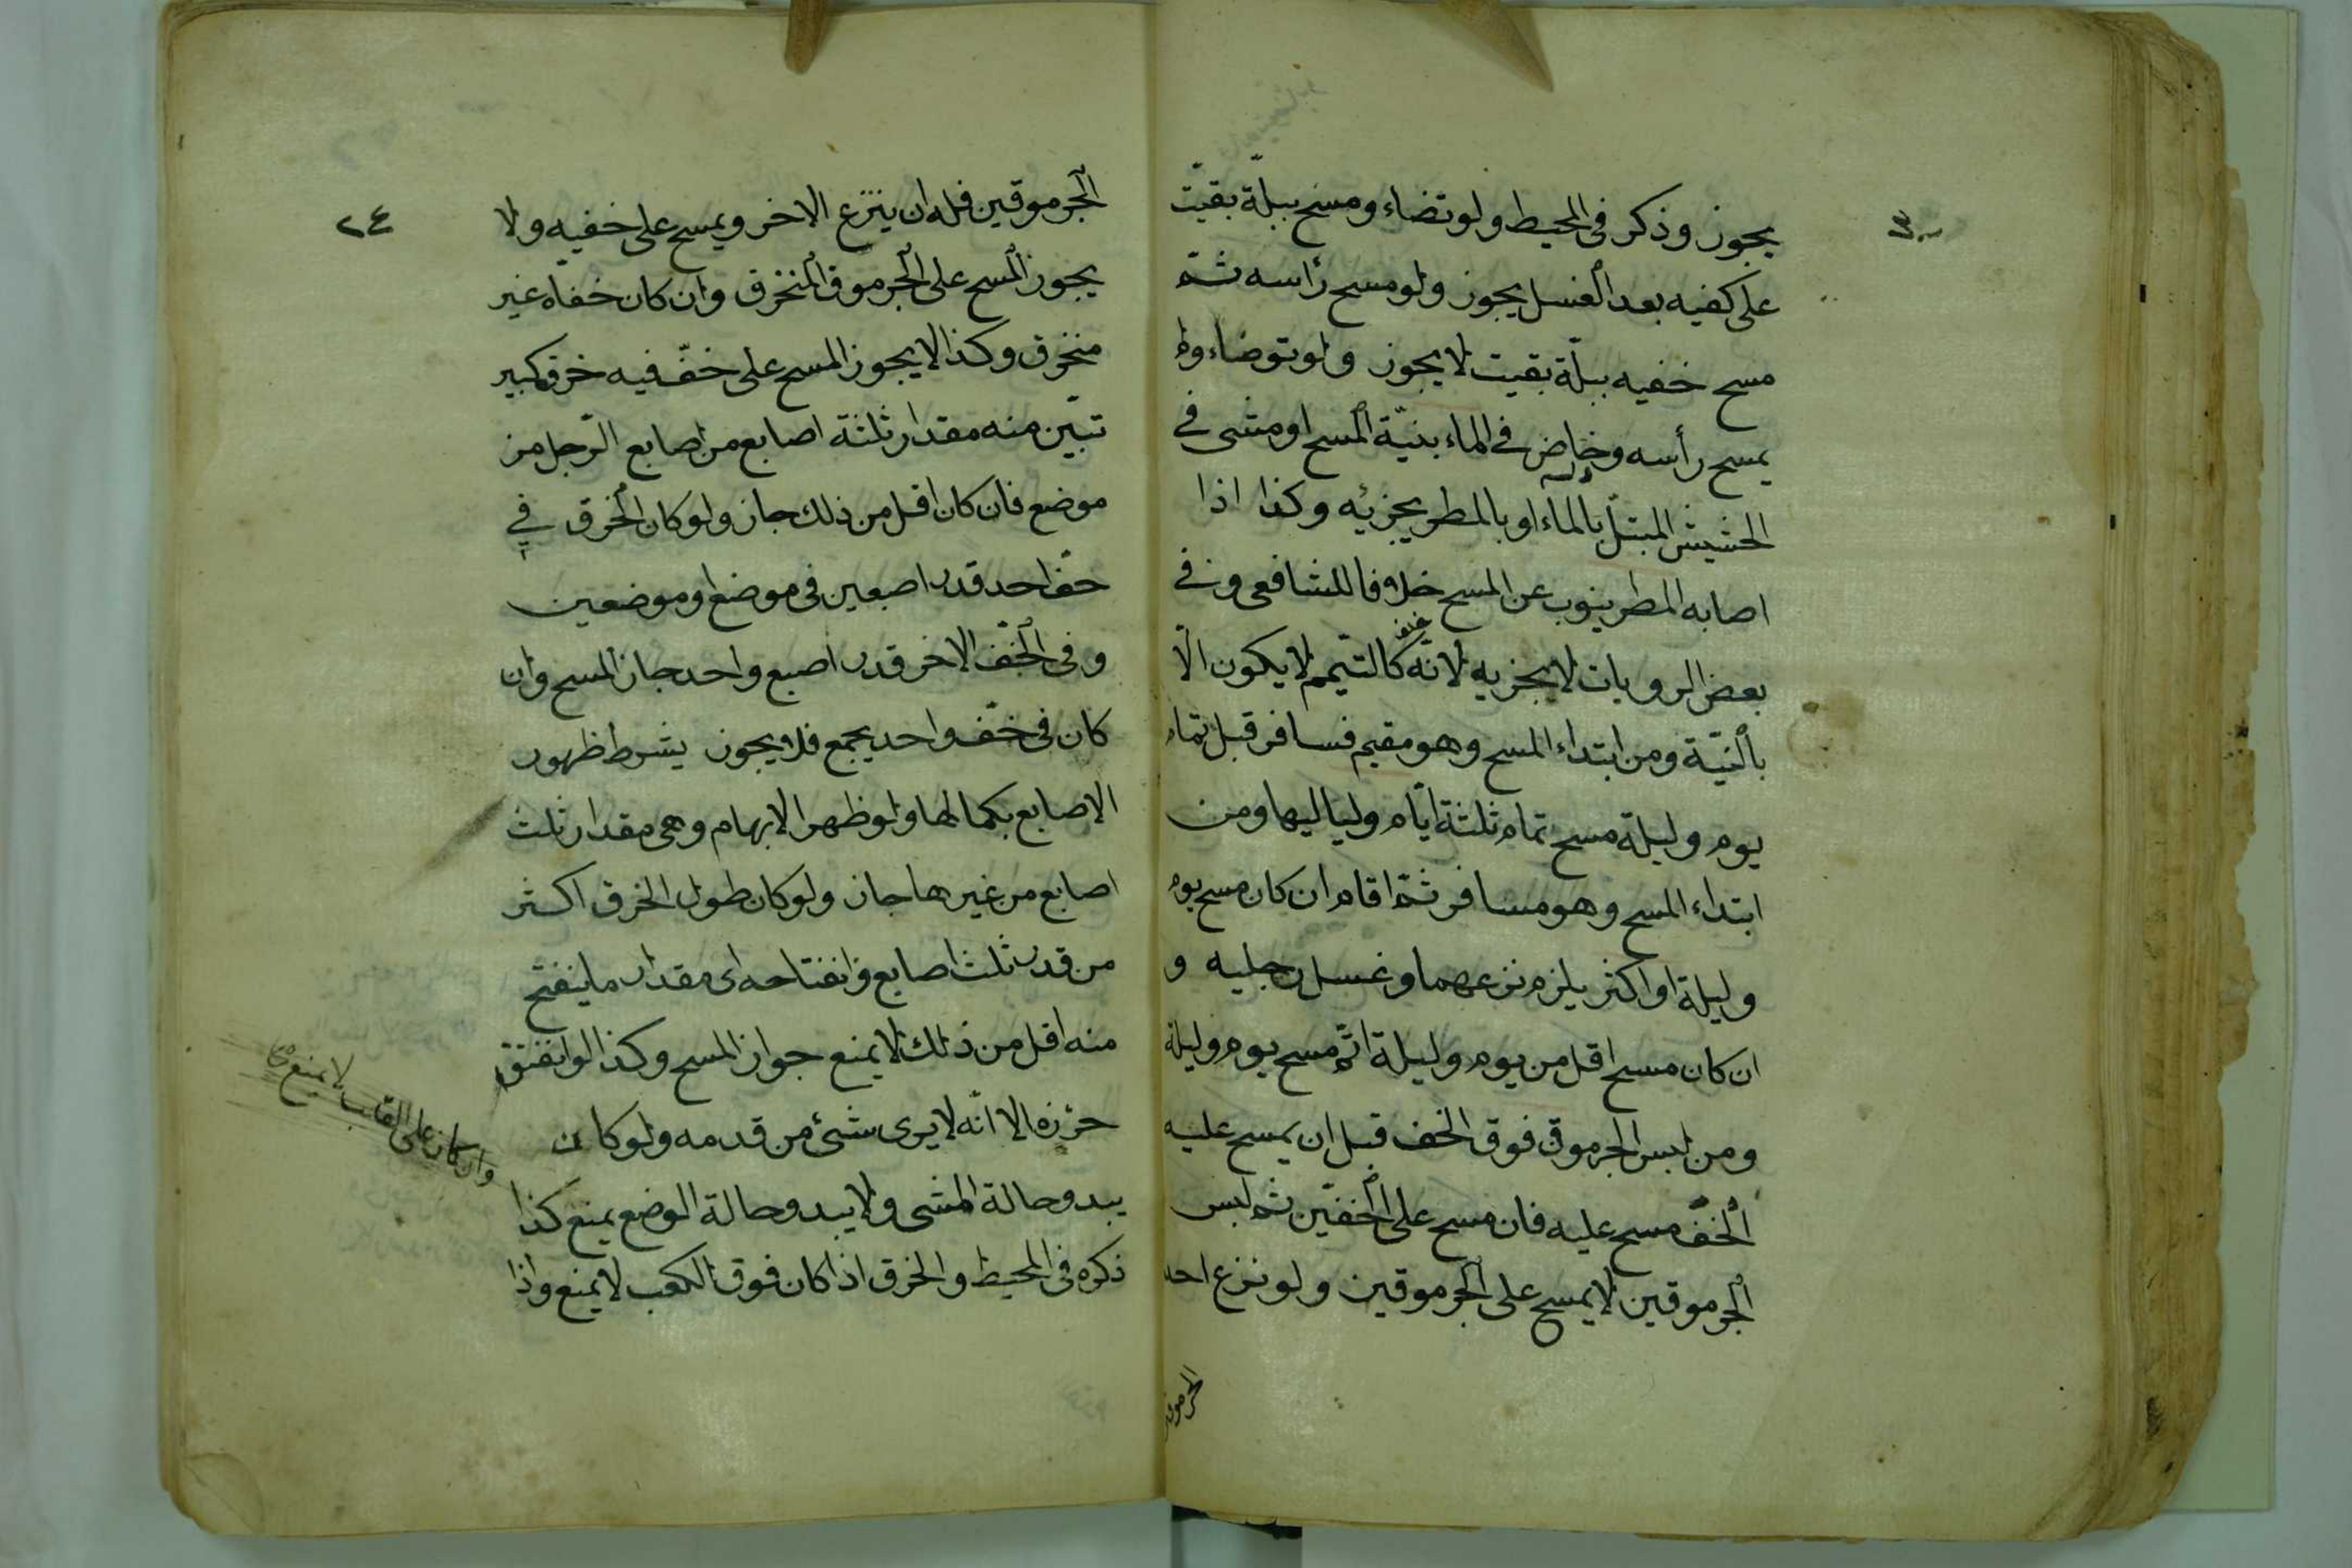 يجوز وذكر فى المحيط ولو تضاء ومسح ببلّة بقيت
على كفيه بعد الغسل يجوز ولو مسح رأسه ثم
مسح خفيه ببلّة بقيت لا يجوز ولو توضاء ولم
يمسح رأسه وخاض فى الماء بنيّة المسح او مشى فى
الحشيش المبتلّ بالماء او بالمطر يجزئه وكذا اذا
اصابه المطر ينوب عن المسح خلافا للشافعى وفى
بعض الرويات لا يجزيه لانّه كالتيّمم لا يكون الّا
بالنيّة ومن ابتداء المسح وهو مقيم فسافر قبل تمام
يوم وليلة مسح تمام ثلثة ايّام ولياليها ومن
ابتداء المسح وهو مسافر ثمّ اقام ان كان مسح يوم
وليلة او اكثر يلزم نزعهما وغسل رجليه و
ان كان مسح اقل من يوم وليلة اتمّ مسح يوم وليلة
ومن لبس الجرموق فوق الخف قبل ان يمسح عليه
الخفّ مسح عليه فان مسح على الخفّين ثم لبس
الجرموقين لا يمسح على الجرموقين ولو نزع احد
الجرموقين
٢٤
الجرموقين فله ان ينزع الاخر ويمسح على خفيه ولا
يجوز المسح على الجرموق المنخرق وان كان خفّاه غير
منخرق وكذا لا يجوز المسح على خفّ فيه خرق كبير
تبيّن منه مقدار ثلثة اصابع من اصابع الرّجل من
موضع فان كان اقل من ذلك جاز ولو كان الخرق في
خفّ احد قدر اصبعين فى موضع او موضعين
وفى الخفّ الاخر قدر اصبع واحد جاز المسح وان
كان فى خفّ واحد يجمع فلا يجوز يشرط ظهور
الاصابع بكمالها ولو ظهر الابهام وهى مقدار ثلث
اصابع من غيرها جاز ولو كان طول الخرق اكثر
من قدر ثلث اصابع وانفتاحه اى مقدار ما ينفتح
منه اقل من ذلك لا يمنع جواز المسح وكذا لو انفتق
خرزه الا انّه لا يرى شئ من قدمه ولو كان
يبدو حالة المشى ولا يبدو حالة الوضع يمنع كذا
ذكره فى المحيط والخرق اذا كان فوق الكعب لا يمنع واذا
وان كان على القلب لا يمنع